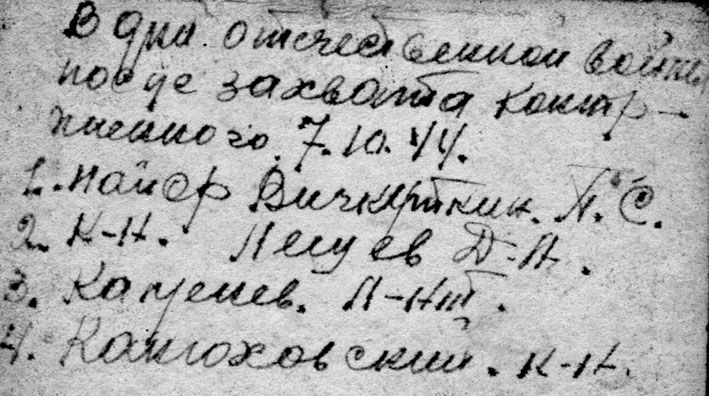 В дни отечественной войны
после захвата контр-
пленного. 7.10.44.
1. Майор Вичкуткин. П. С.
2. К-н. Легуев Д-А.
3. Каменев. Л-нт.
4. Конюховский. к-н.